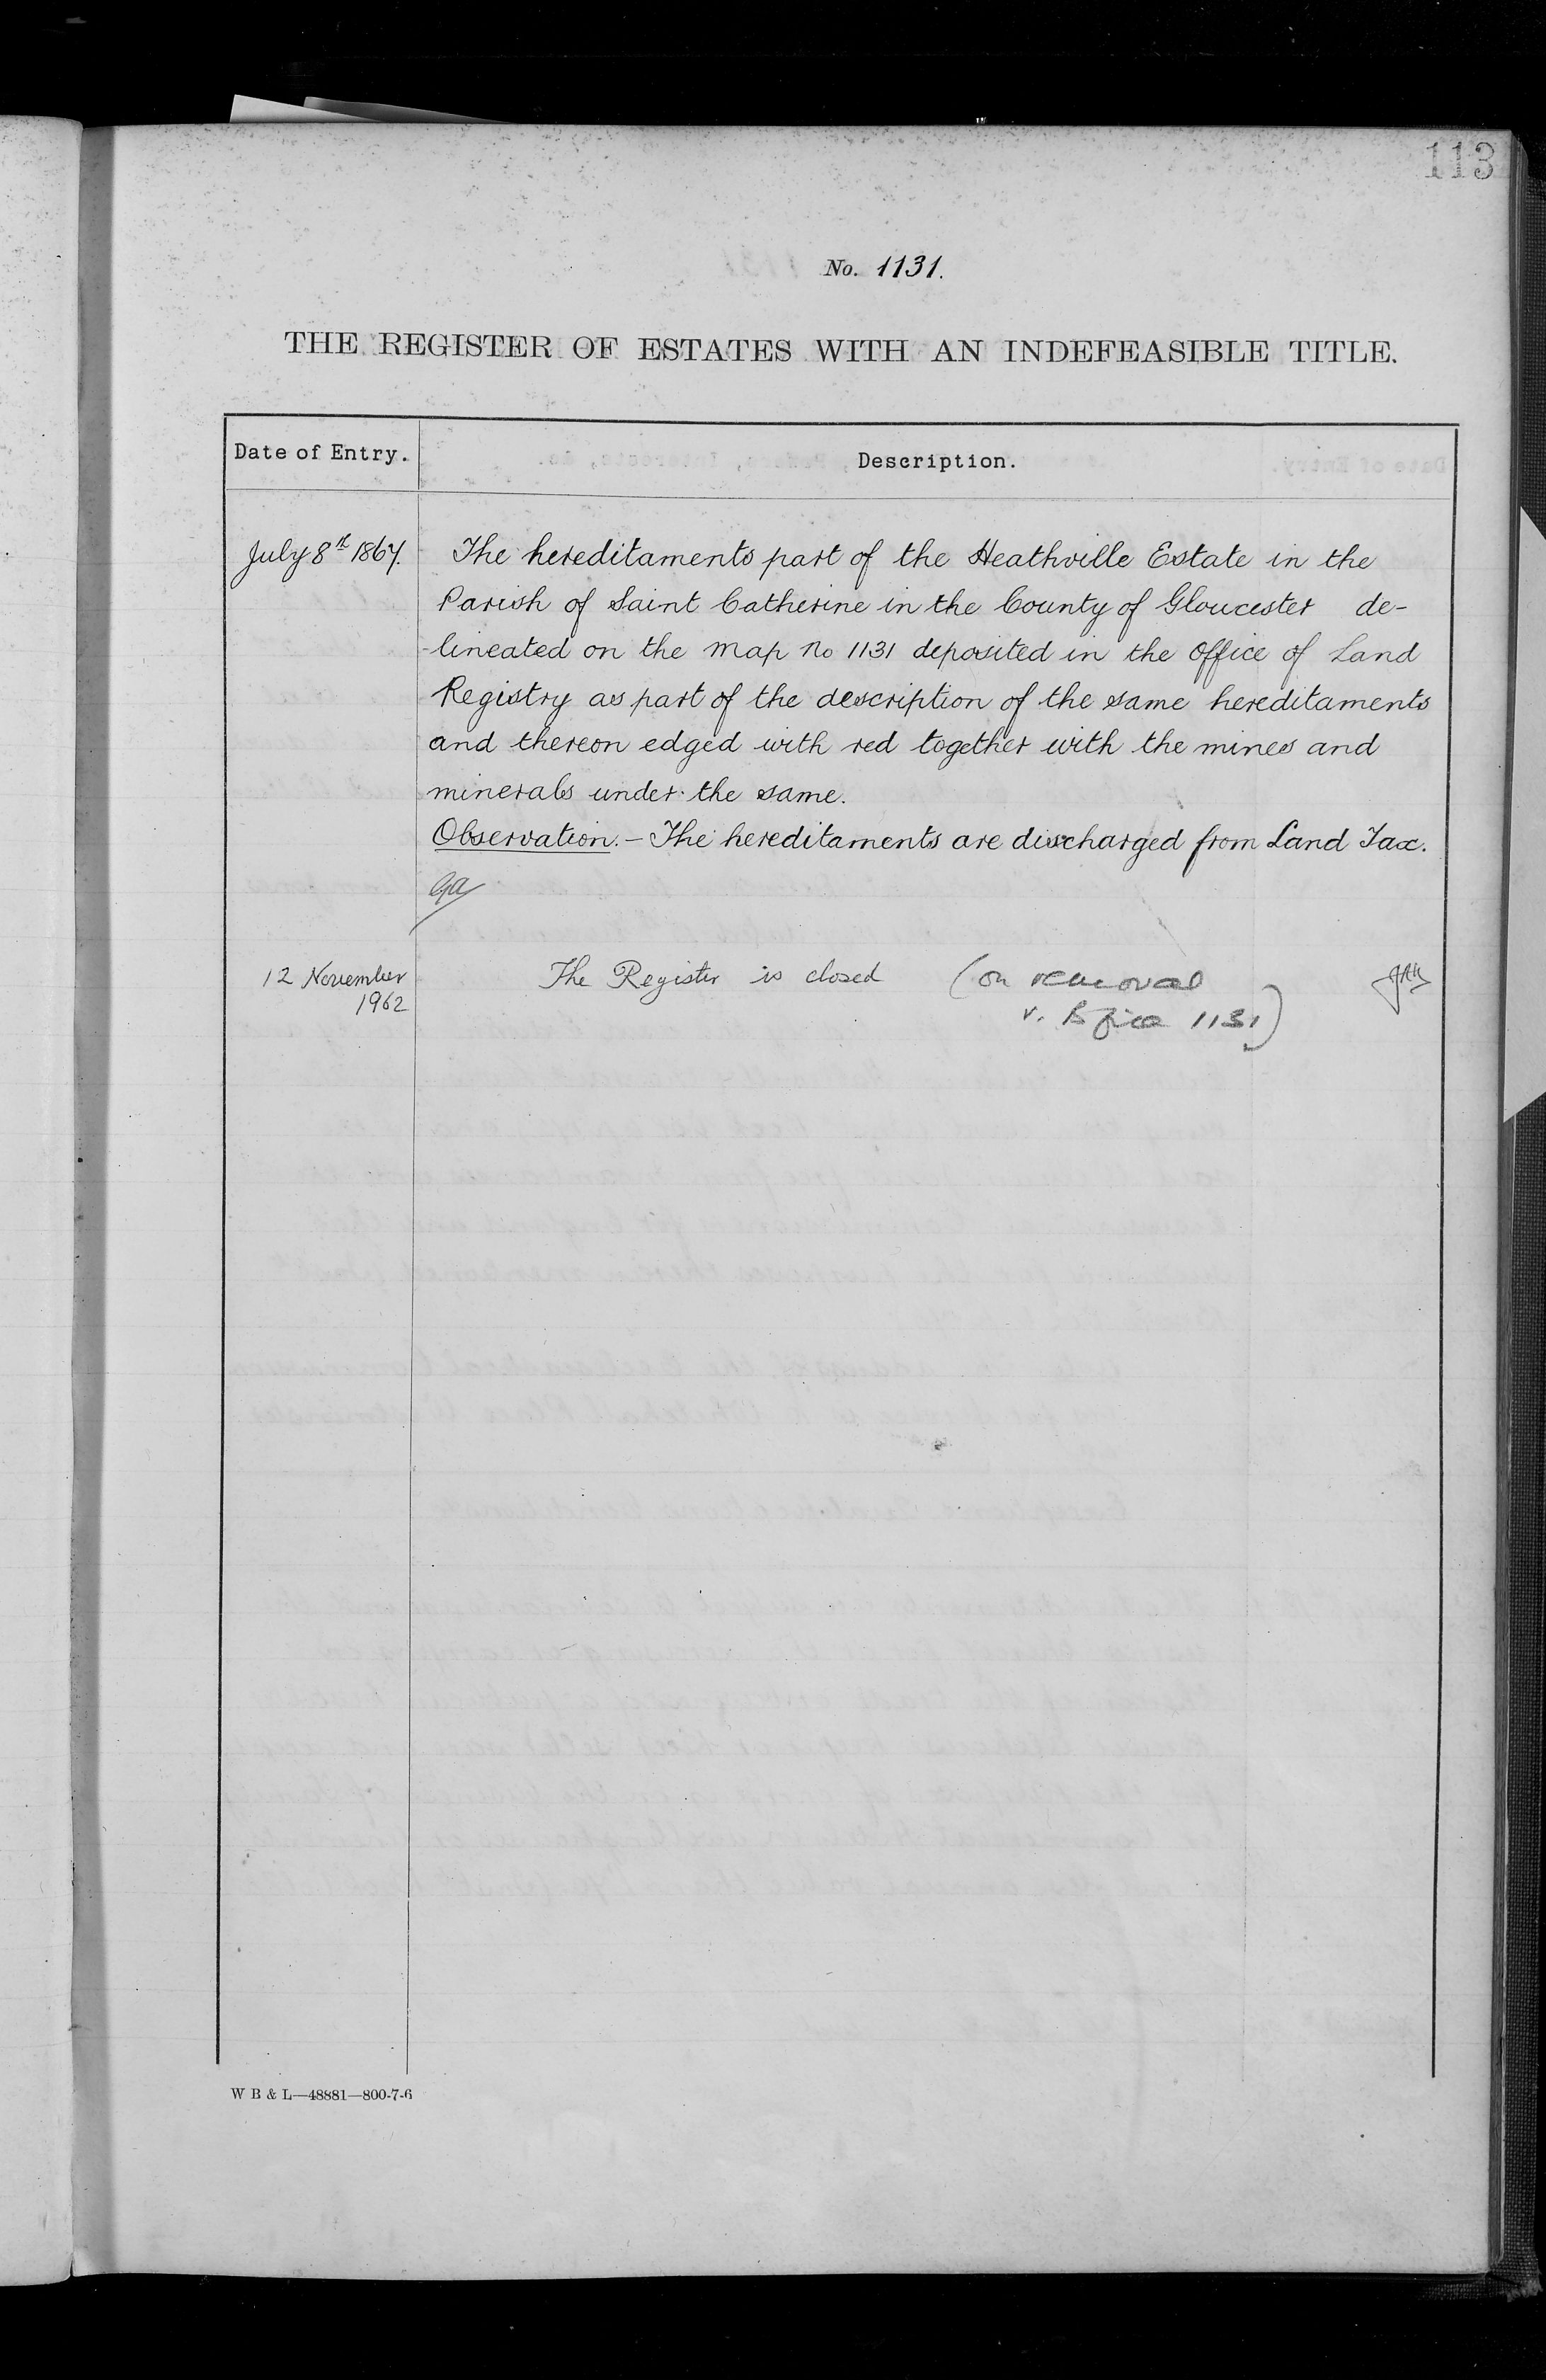 113
No. 1131.
THE REGISTER OF ESTATES WITH AN INDEFEASIBLE TITLE.
Date of Entry.
Description.
July 8th 1867. The hereditaments part of the Heathville Estate in the
Parish of Saint Catherine in the County of Gloucester de-
-lineated on the map No 1131 deposited in the Office of Land
Registry as part of the description of the same hereditaments
and thereon edged with red together with the mines and
minerals under the same.
Observation. – The hereditaments are discharged from Land Tax.
12 November The Register is closed (on removal
1962 v. B file 1131)
W B & L—48881—800-7-6